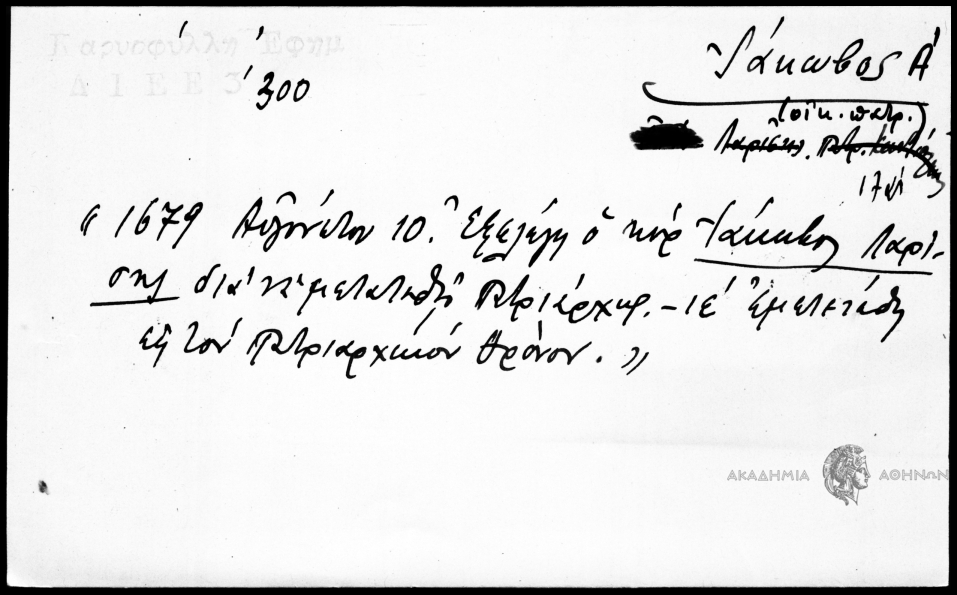 Καρυοφύλλη Ἐφημ
ΔΙΕΕ 3
300
Ἰάκωβος Α΄
(οἰκ. πατρ.)
" 1679 Αὐγούστου 10. Ἐξελέγη ὁ κὺρ Ἰάκωβος Λαρί-
σης διὰ νὰ μετατεθῇ Πατριάρχης. – ιε΄ Ἐμετετέθη
εἰς τὸν Πατριαρχικὸν θρόνον. "
ΑΚΑΔΗΜΙΑ ΑΘΗΝΩΝ